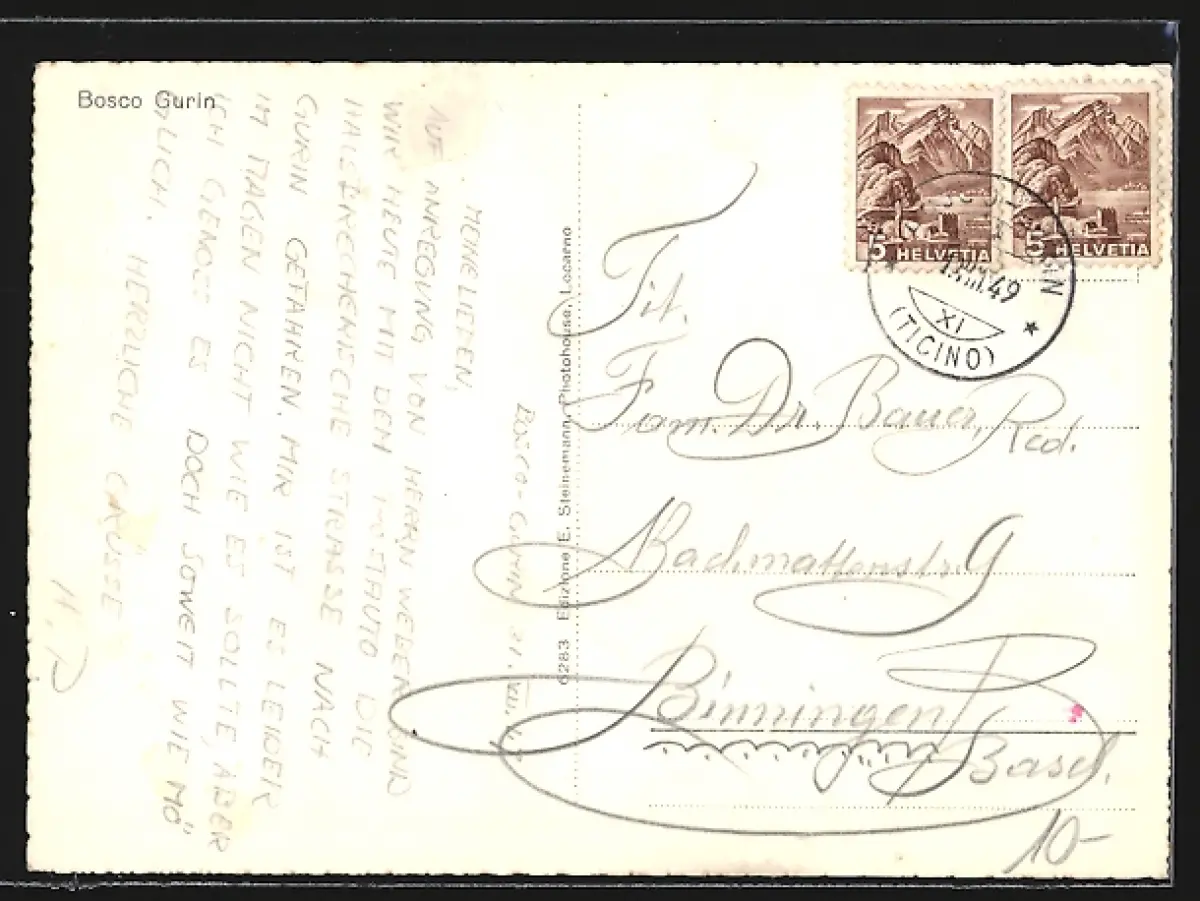 Bosco Gurin
BOSCO-GURIN 21. VIII.
MEINE LIEBEN,
AUF ANREGUNG VON HERRN WEBER SIND
WIR HEUTE MIT DEM POSTAUTO DIE
HALSBRECHERISCHE STRASSE NACH
GURIN GEFAHREN. MIR IST ES LEIDER
IM MAGEN NICHT WIE ES SOLLTE, ABER
ICH GENOSS ES DOCH SOWEIT WIE MÖ
GLICH. HERZLICHE GRÜSSE
6283 Edizione E. Steinemann, Photohouse, Locarno
5 HELVETIA
5 HELVETIA
VIII.49
XI
(TICINO)
Tit.
Fam. Dr. Bauer, Red.
Bachmattenstr. 9
Binningen
Basel.
10-